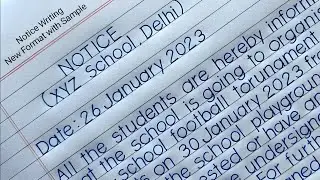 Notice Writing
New Format with Sample
NOTICE
(XYZ school, Delhi)
Date: 26 January 2023
All the students are hereby inform
at the school is going to organi
school football torunament
ts on 30 January 2023 fr
the school playground
ested or have an
undersign
For furth